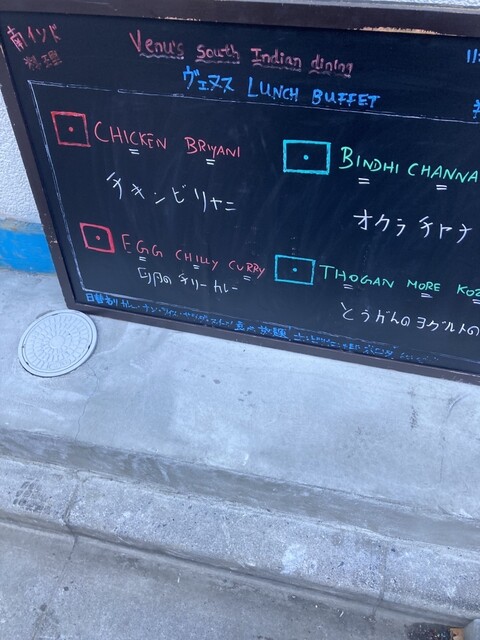 南インド
料理
Venu's South Indian dining
11:
ヴェヌス LUNCH BUFFET
CHICKEN BRIYANI
チキンビリヤニ
BINDHI CHANNA
オクラ チャナ
EGG CHILLY CURRY
卵のチリーカレー
THOGAN MORE KOZ
とうがんのヨーグルトの
日替りカレー・ナン・ライス・サラダ